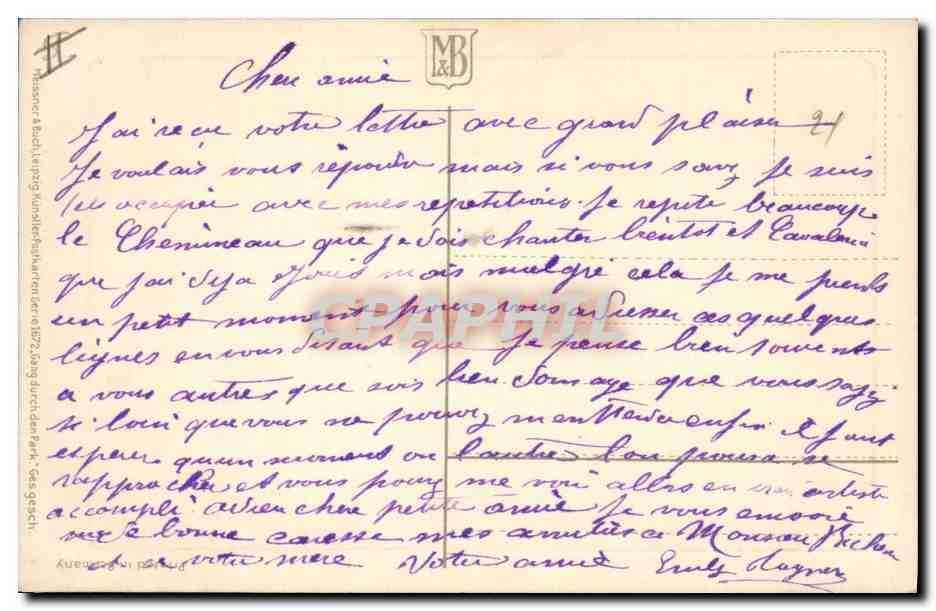 M&B
21
Cher amie
J'ai recu votre lettre avec grand plaisir
Je voulais vous répondre mais si vous savez je suis
occupée avec mes repetitions. Je repete beaucoup
le Chemineau que je dois chanter bientot et Cavaleria
que j'ai deja mais malgré cela je me prends
un petit moment pour vous adresser ces quelques
lignes en vous disant que je pense bien souvent
a vous autres que sois bien domage que vous soyez
si loin que vous ne pouvez m'enttendre enfin il faut
esperer qu'un moment ou l'autre l'on poura se
rapprocher et vous pourez me voir allors en vrai artiste
accompli. adieu chere petite amie je vous envoie
une bonne caresse mes amities a Monsieur
et a votre mere Votre amie Emily
CPAPHTL
Meissner & Buch, Leipzig. Künstler-Postkarten Serie 1672. „Gang durch den Park." Ges. gesch.
Printed in Germany